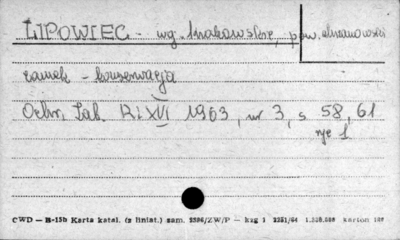 LIPOWIEC - wg. krakowskie, pow. chrzanowski
zamek - konserwacja
Ochr. Zab. R. XVI 1963, nr 3, s 58, 61
ryc 1
CWD — B-15b Karta katal. (z liniat.) zam. 2286/ZW/P — kzg 1 2251/64 1.328.568 karton